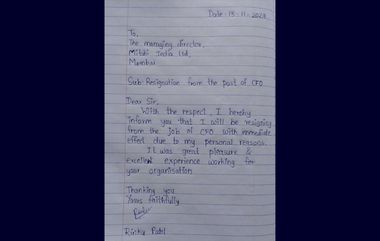 Date : 15 - 11 - 2024
To,
The managing director,
Mitshi India Ltd,
Mumbai
Sub: Resignation from the post of CFO
Dear Sir,
With the respect, I hereby
inform you that I will be resigning
from the job of CFO with immediate
effect due to my personal reasons.
It was great pleasure &
excellent experience working for
your organisation
Thanking you
Yours faithfully
Patel